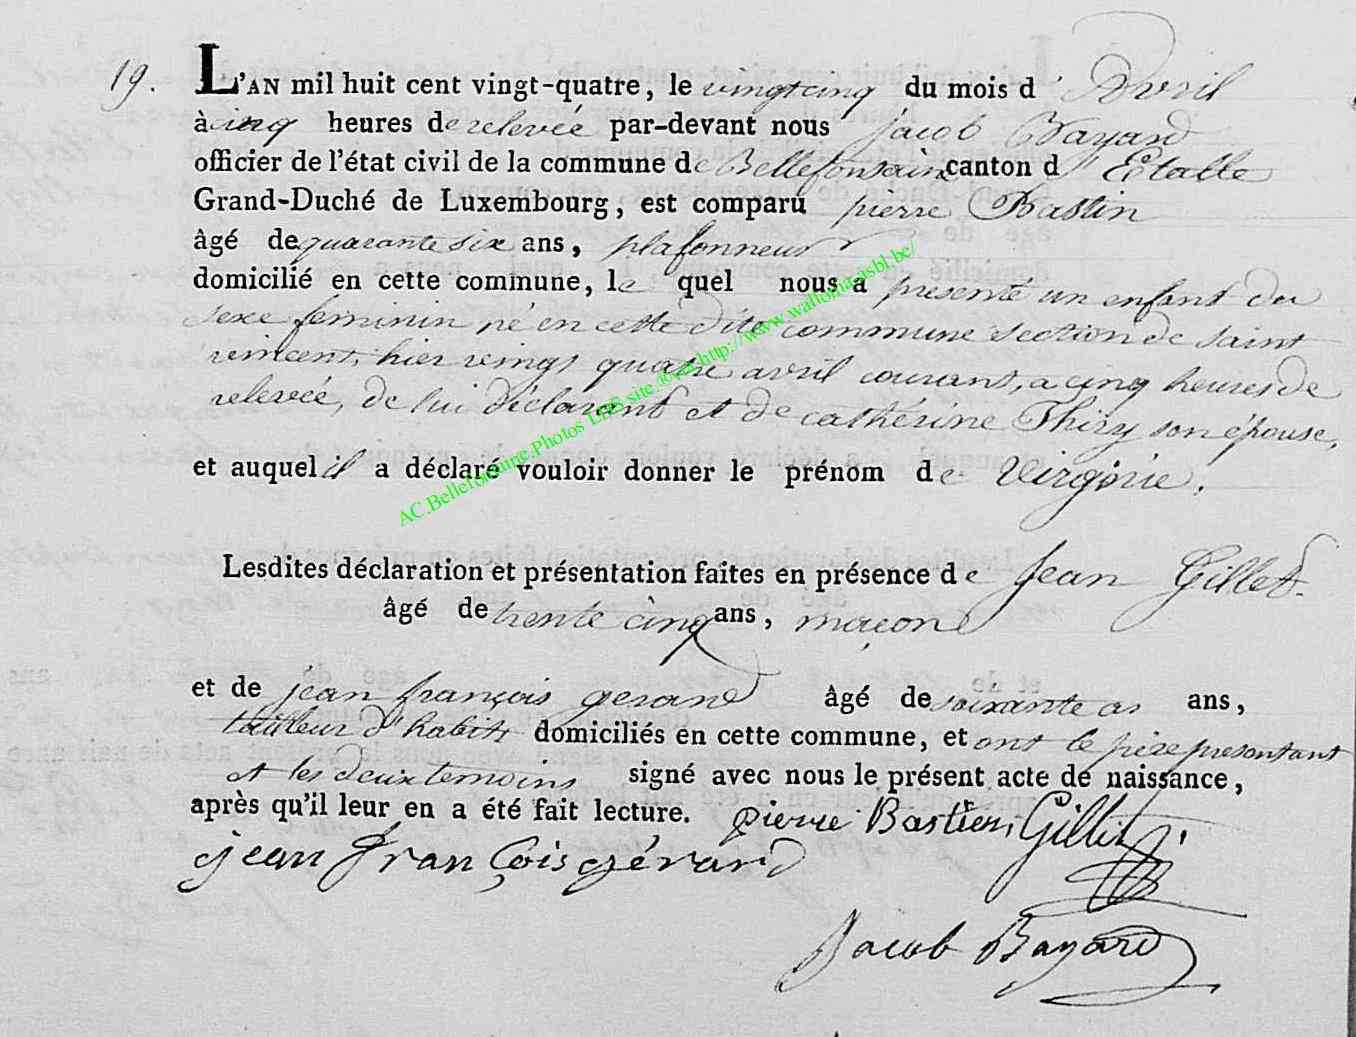 19.
L'AN mil huit cent vingt-quatre, le vingt cinq du mois d'Avril
à cinq heures de relevée par-devant nous jacob Bayard
officier de l'état civil de la commune de Bellefontaine canton d'Etalle
Grand-Duché de Luxembourg, est comparu pierre Bastin
âgé de quarante six ans, plafonneur
domicilié en cette commune, le quel nous a presenté un enfant du
sexe feminin né en cette dite commune section de saint
vincent, hier vingt quatre avril courant, a cinq heures de
relevée, de lui déclarant et de cathérine Thiry son épouse,
et auquel il a déclaré vouloir donner le prénom de Virginie.
Lesdites déclaration et présentation faites en présence de Jean Gillet
âgé de trente cinq ans, maçon
et de jean françois gerard âgé de soixante ans,
tailleur d'habits domiciliés en cette commune, et ont le père presentant
et les deux temoins signé avec nous le présent acte de naissance,
après qu'il leur en a été fait lecture. pierre Bastien, Gillet
jean françois gérard
Jacob Bayard
AC.Bellefontaine.Photos LDS site http://www.wallonia.asbl.be/